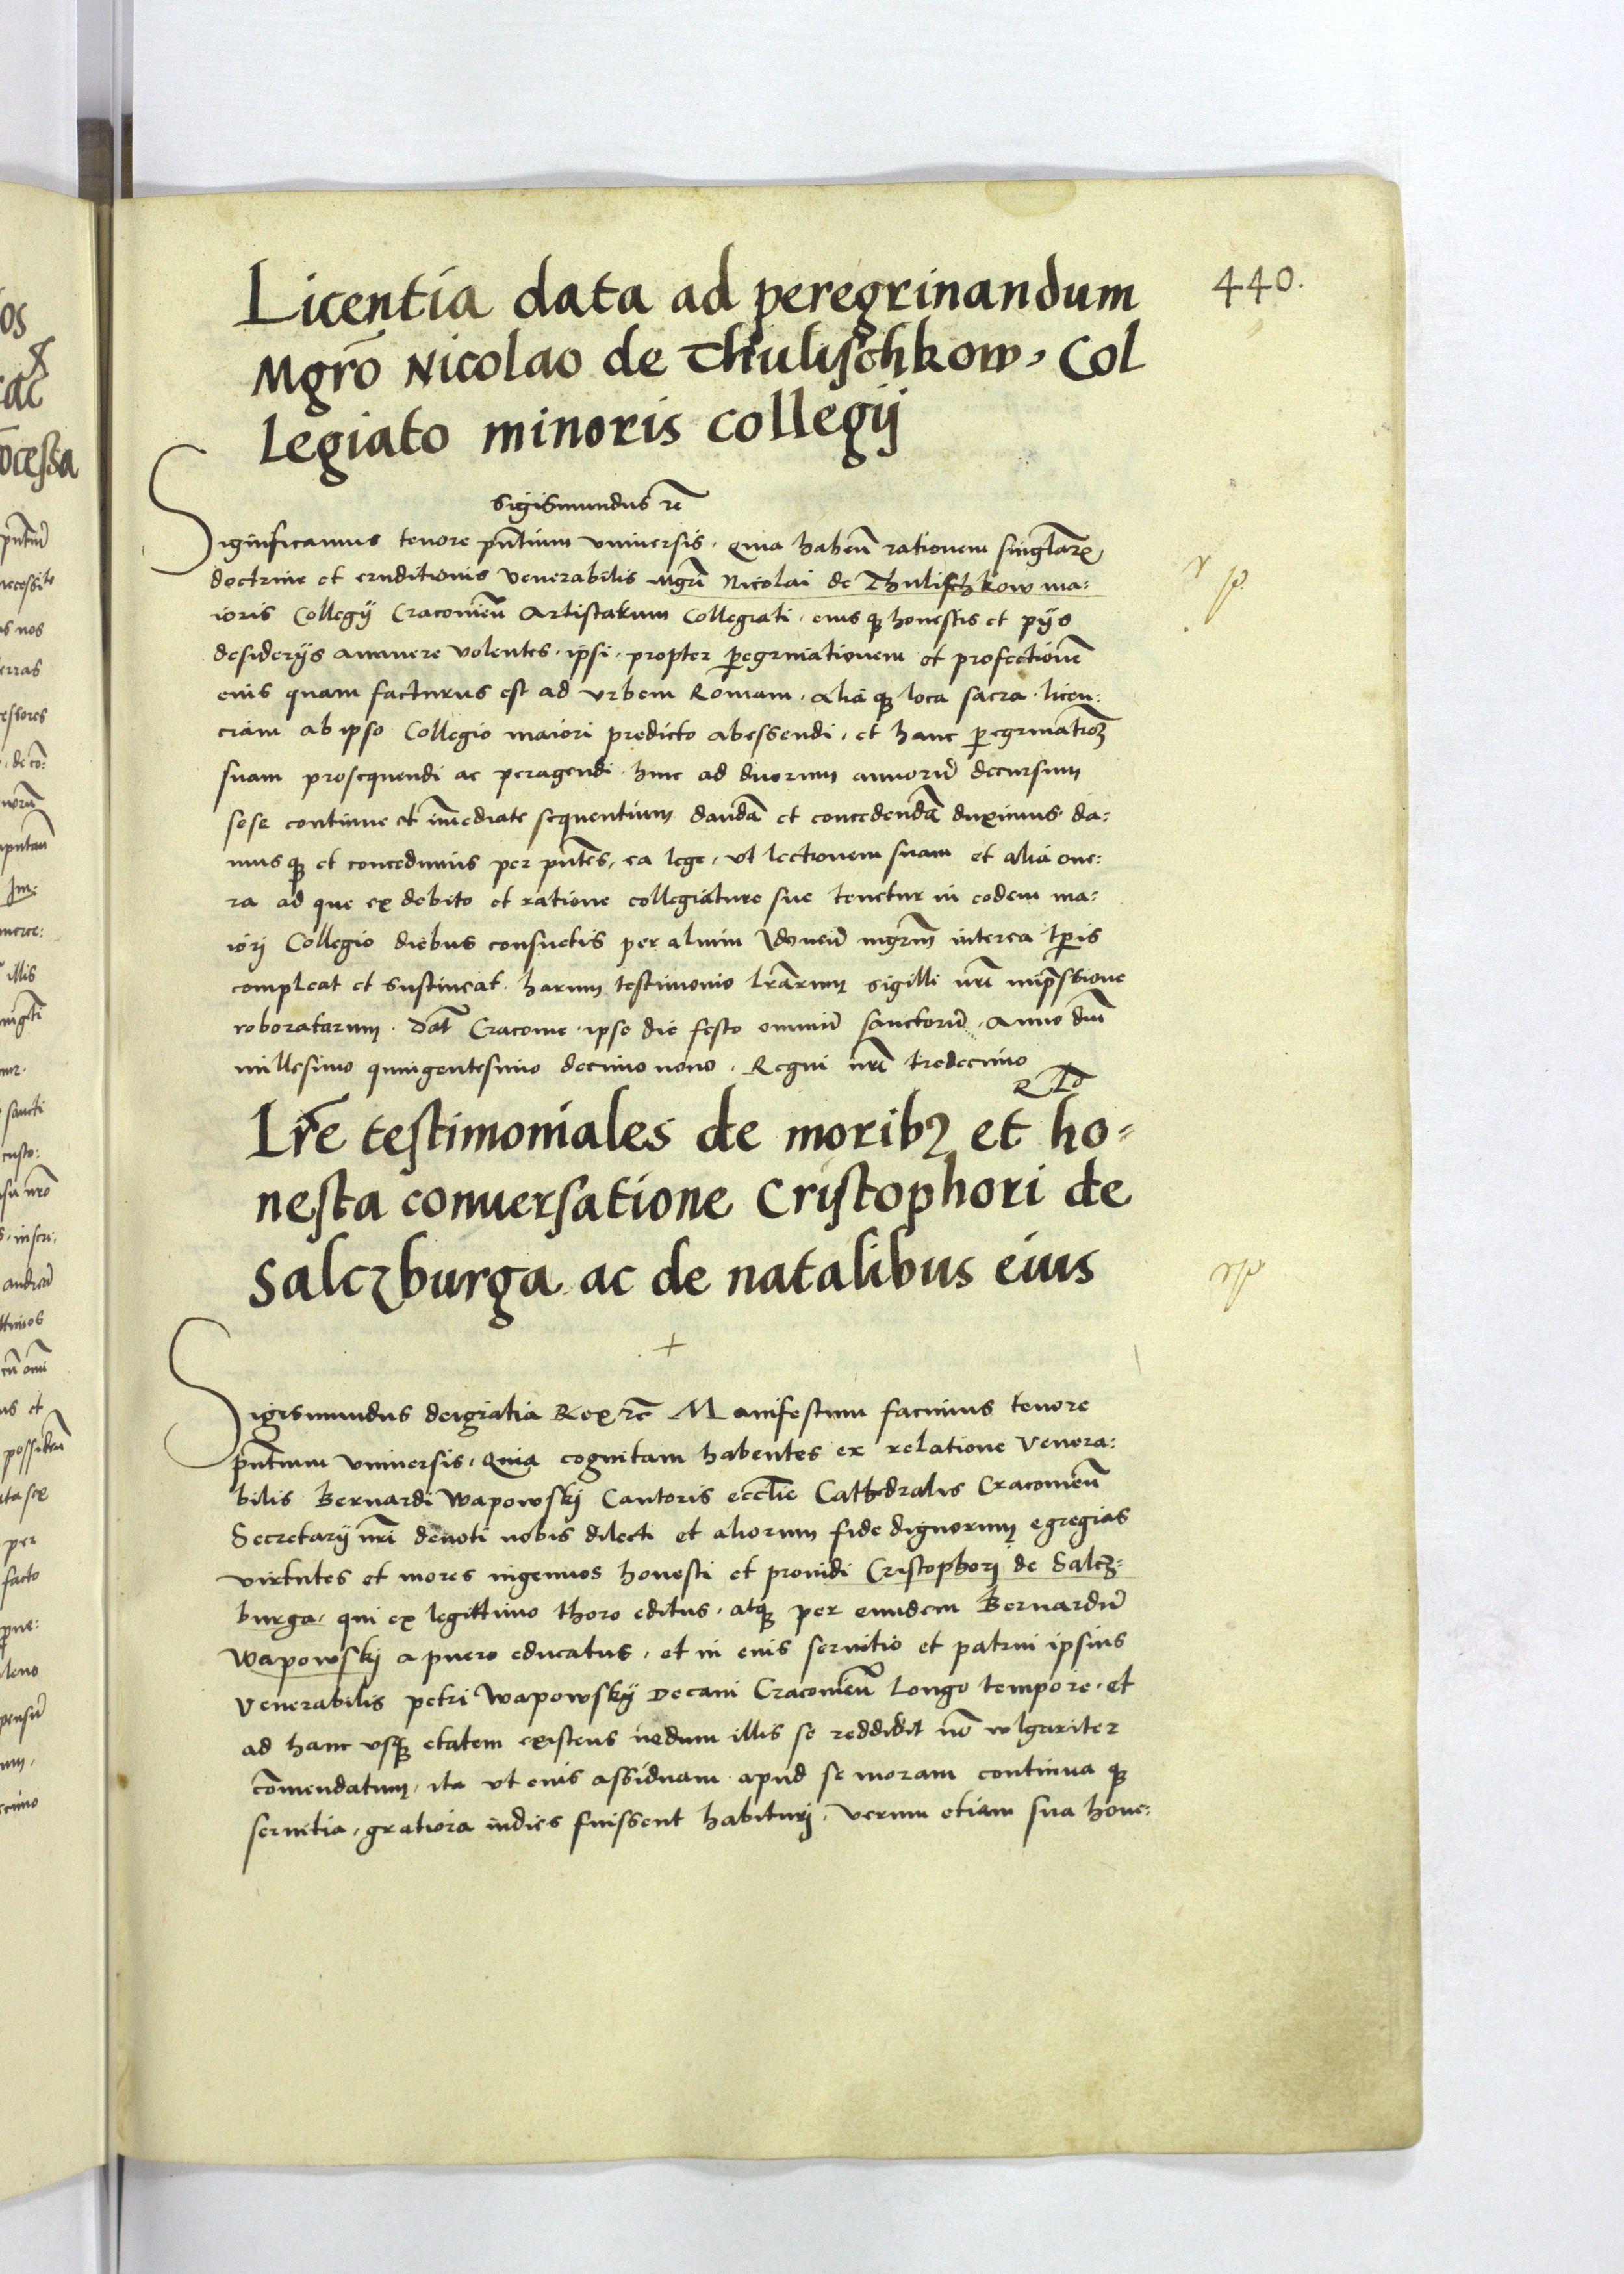 440.
Licentia data ad peregrinandum
Mgrō Nicolao de Thulischkow, Col
legiato minoris collegij
Sigismundus rc̄
Significamus tenore pn̄tium vniuersis. Quia haben̄ rationem singlārē
doctrine et eruditionis venerabilis Mgrī Nicolai de Thulischkow ma:
ioris Collegij Cracouień Artistarum Collegiati, eius qꝫ honestis et pijs
desiderijs annuere volentes, ipsi, propter p̄egrinationem et profectionē
eius quam facturus est ad vrbem Romam, alia qꝫ loca sacra, licen:
ciam ab ipso Collegio maiori predicto abessendi, et hanc p̄egrinatiōꝫ
suam prosequendi ac peragendi hinc ad duorum annorū decursum
sese continue et īmediate sequentium dandā et concedendā duximus da:
mus qꝫ et concedimus per pn̄tes, ea lege, vt lectionem suam et alia one:
ra ad que ex debito et ratione collegiature sue tenetur in eodem ma:
iori Collegio diebus consuetis per alium ydoneū mgrm̄ interea tp̄is
compleat et sustineat. harum testimonio lr̄arum sigilli nrī imp̄ssione
roboratarum. Dat̄ Cracouie ipso die festo omniū sanctorū. Anno dnī
millesimo quingentesimo decimo nono. Regni nrī tredecimo
Lrē testimoniales de moribꝫ et ho=
nesta conuersatione Cristophori de
Salczburga ac de natalibus eius
Sigismundus dei gratia Rex rc̄ Manifestum facimus tenore
pn̄tium vniuersis. Quia cognitam habentes ex relatione venera:
bilis Bernardi Wapowskj Cantoris eccl̄ie Cathedralis Cracouień
Secretarij nrī deuoti nobis dilecti et aliorum fide dignorum egregias
virtutes et mores ingenuos honesti et prouidi Cristophorj de Salcz:
burga, qui ex legittimo thoro editus, atqꝫ per eundem Bernardū
Wapowskj a puero educatus, et in eius seruitio et patrui ipsius
venerabilis petri Wapowskij Decani Cracouień longo tempore, et
ad hanc vsqꝫ etatem existens nedum illis se reddidit nō wlgariter
cōmendatum, ita vt eius assiduam apud se moram continua qꝫ
seruitia, gratiora indies fuissent habiturj, verum etiam sua hone: